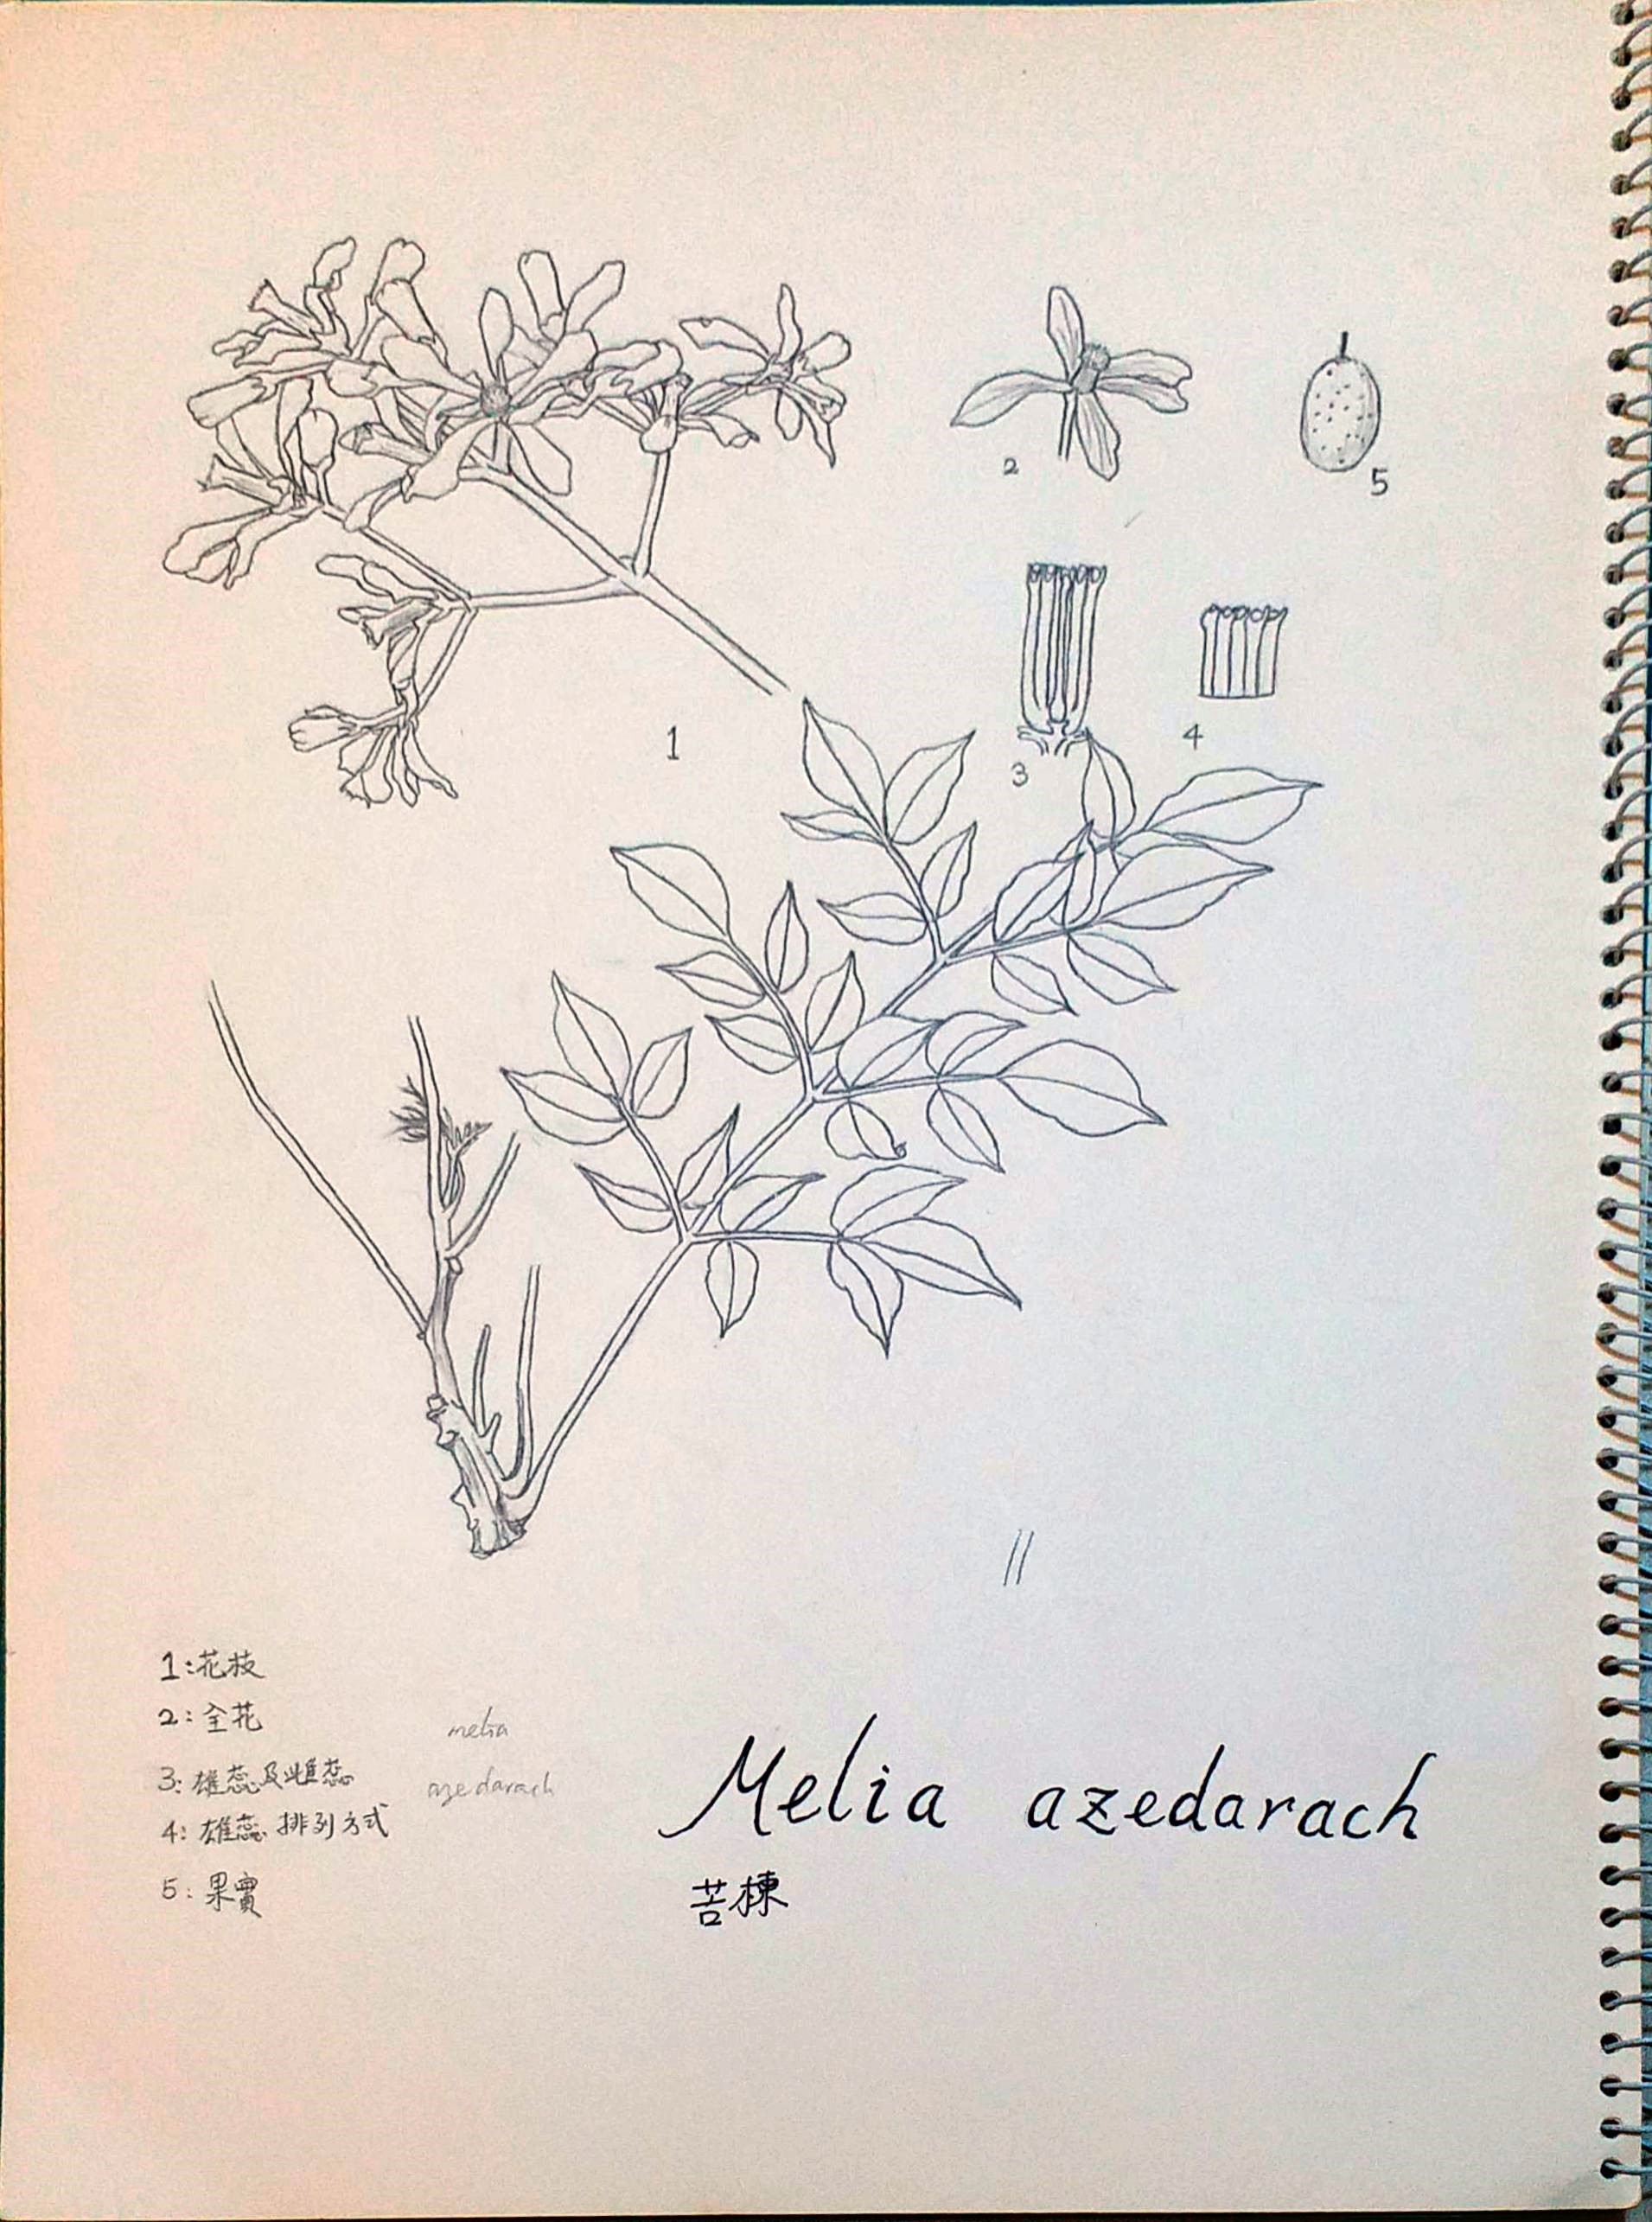 2
5
1
3
4
1:花枝
2:全花
3:雄蕊及雌蕊
4:雄蕊排列方式
5:果實
melia
azedarach
Melia azedarach
苦楝